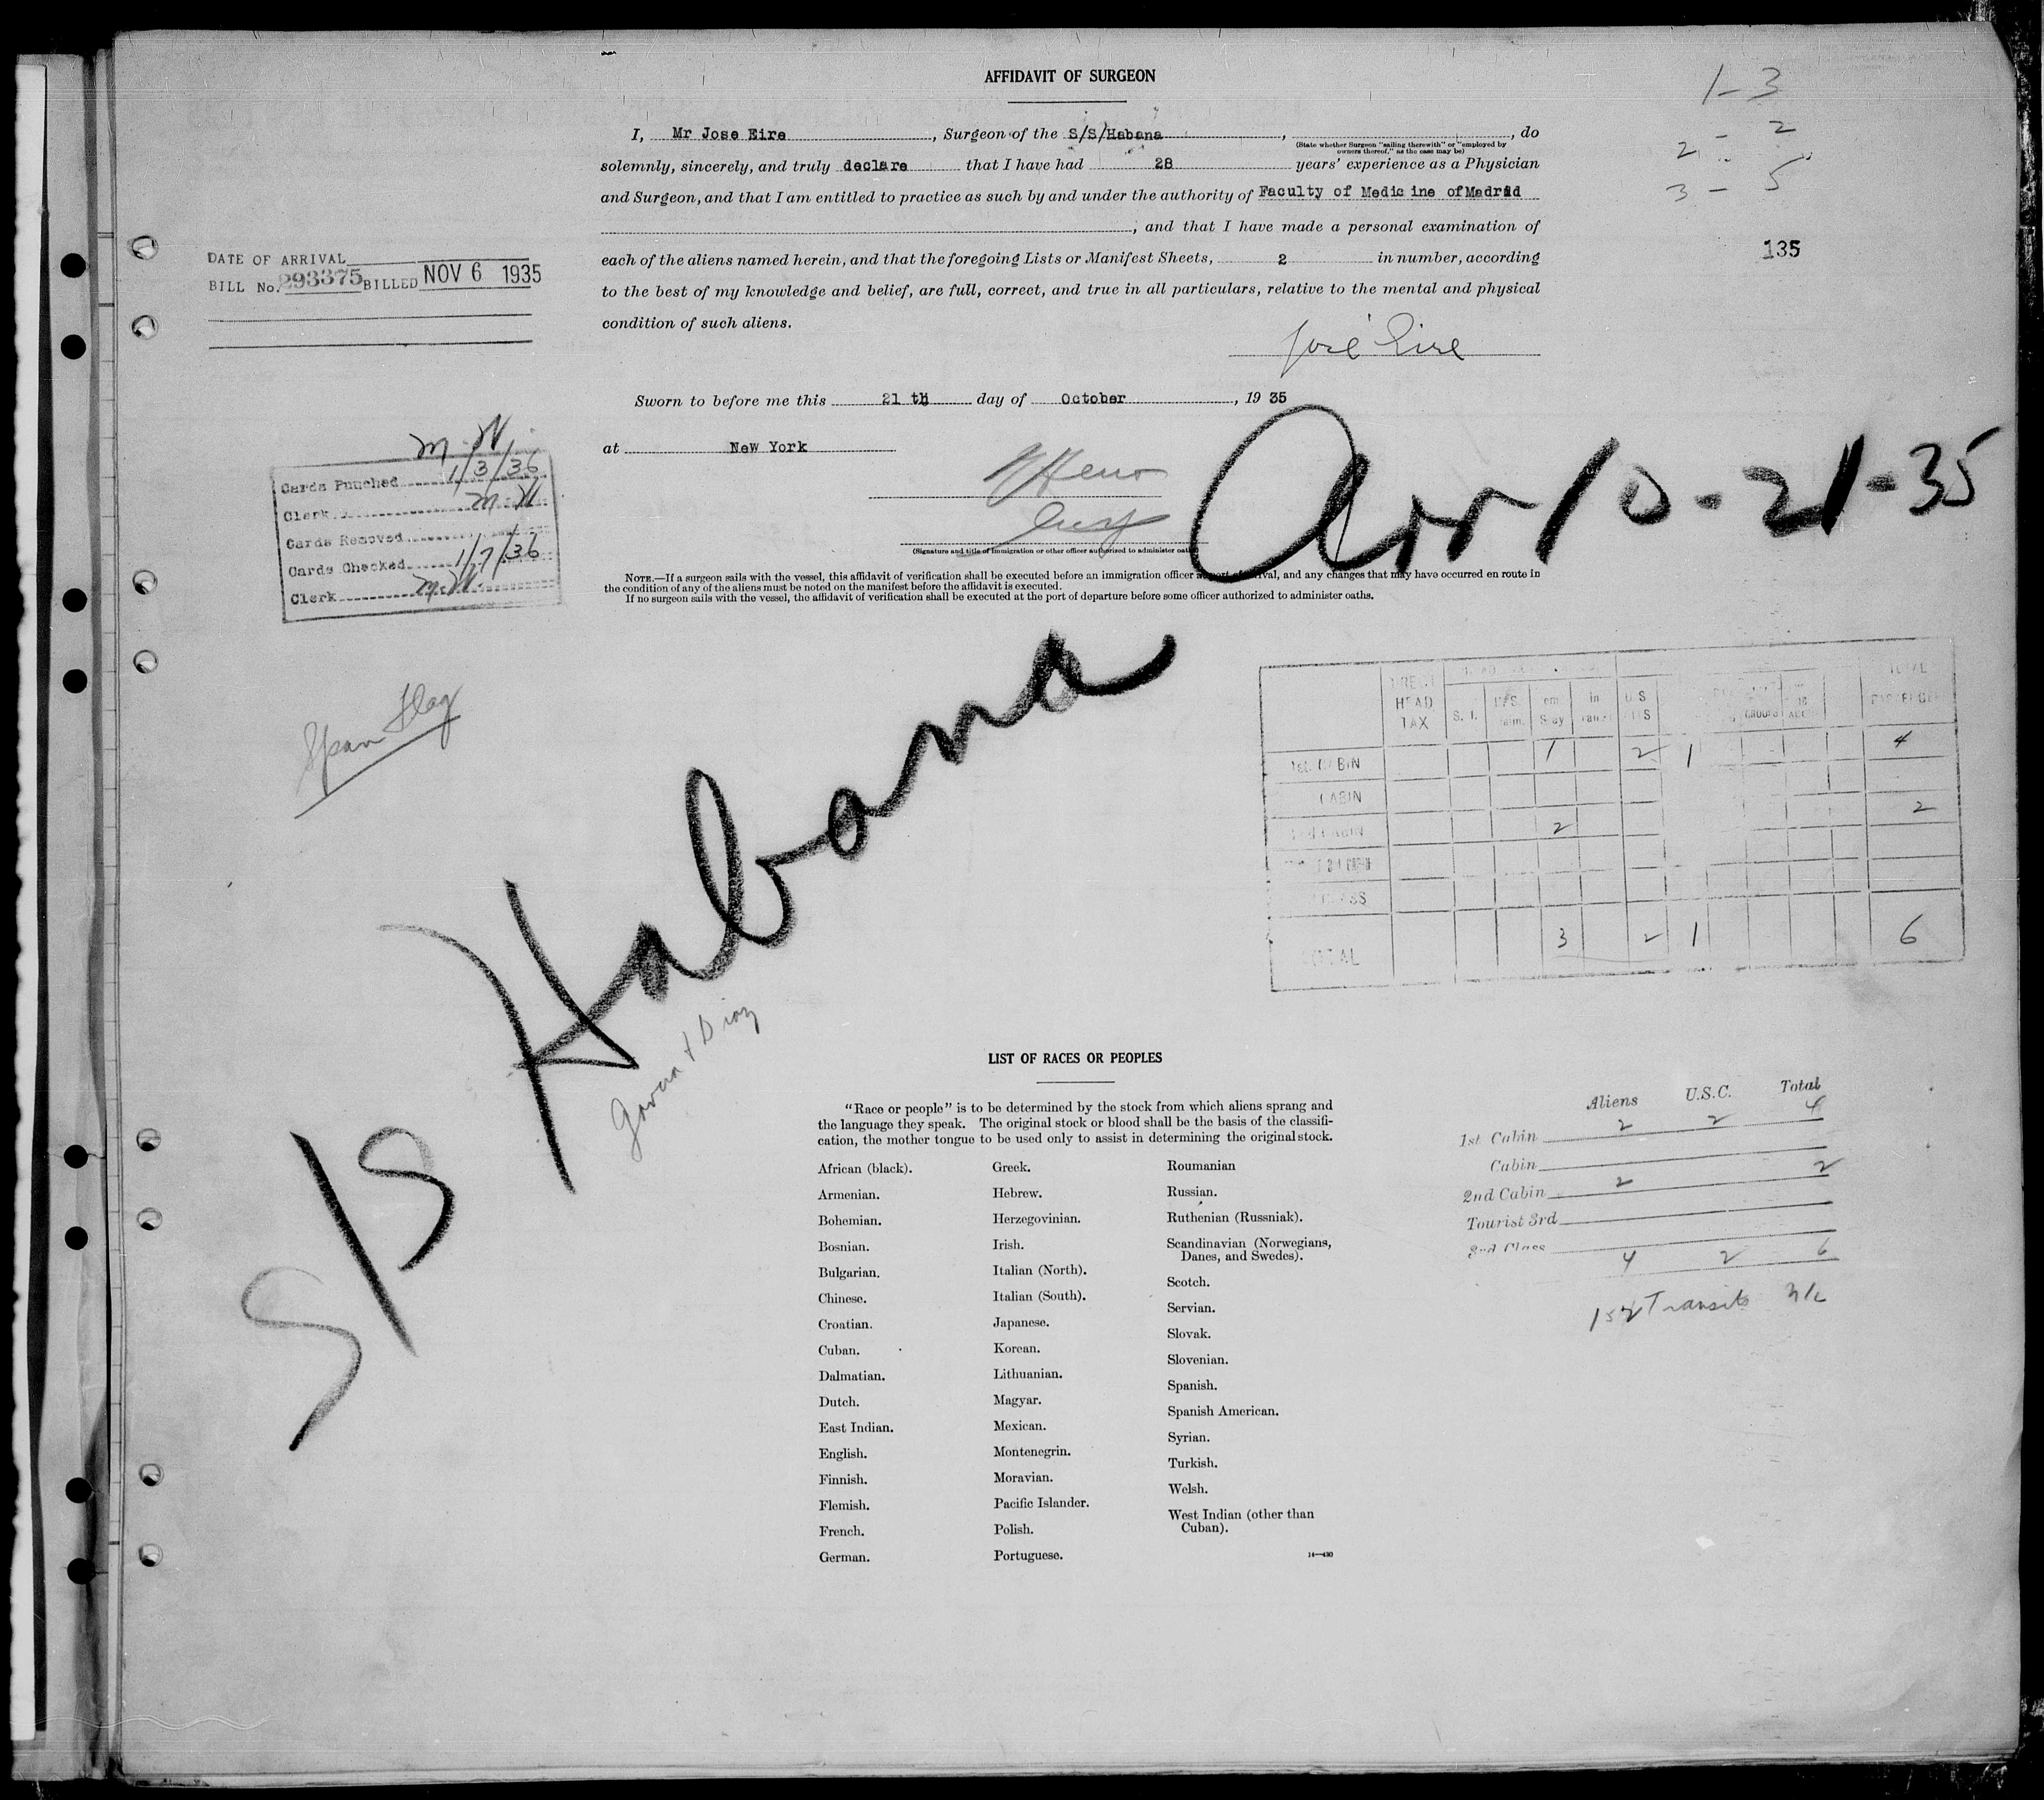 AFFIDAVIT OF SURGEON
1-3
2 - 2
3 - 5
135
I, Mr Jose Eire, Surgeon of the S/S/Habana, , do
(State whether Surgeon "sailing therewith" or "employed by owners thereof," as the case may be)
solemnly, sincerely, and truly declare that I have had 28 years' experience as a Physician
and Surgeon, and that I am entitled to practice as such by and under the authority of Faculty of Medic ine ofMadrid
, and that I have made a personal examination of
each of the aliens named herein, and that the foregoing Lists or Manifest Sheets, 2 in number, according
to the best of my knowledge and belief, are full, correct, and true in all particulars, relative to the mental and physical
condition of such aliens.
José Eire
DATE OF ARRIVAL
BILL No. 293375 BILLED NOV 6 1935
Sworn to before me this 21 th day of October, 19 35
at New York
Arr 10-21-35
(Signature and title of immigration or other officer authorized to administer oaths)
M.W.
Cards Punched 1/3/36
Clerk M.W.
Cards Removed
Cards Checked 1/7/36
Clerk M.W.
NOTE.—If a surgeon sails with the vessel, this affidavit of verification shall be executed before an immigration officer at port of arrival, and any changes that may have occurred en route in
the condition of any of the aliens must be noted on the manifest before the affidavit is executed.
If no surgeon sails with the vessel, the affidavit of verification shall be executed at the port of departure before some officer authorized to administer oaths.
Span Flag
S/S Habana
Garcia & Diaz
HEAD TAX S. T. U.S. TOTAL
1st. CABIN 1 2 1 4
CABIN
2nd CABIN 2 2
TOTAL 3 2 1 6
LIST OF RACES OR PEOPLES
"Race or people" is to be determined by the stock from which aliens sprang and
the language they speak. The original stock or blood shall be the basis of the classifi-
cation, the mother tongue to be used only to assist in determining the original stock.
African (black).
Armenian.
Bohemian.
Bosnian.
Bulgarian.
Chinese.
Croatian.
Cuban.
Dalmatian.
Dutch.
East Indian.
English.
Finnish.
Flemish.
French.
German.
Greek.
Hebrew.
Herzegovinian.
Irish.
Italian (North).
Italian (South).
Japanese.
Korean.
Lithuanian.
Magyar.
Mexican.
Montenegrin.
Moravian.
Pacific Islander.
Polish.
Portuguese.
Roumanian
Russian.
Ruthenian (Russniak).
Scandinavian (Norwegians,
Danes, and Swedes).
Scotch.
Servian.
Slovak.
Slovenian.
Spanish.
Spanish American.
Syrian.
Turkish.
Welsh.
West Indian (other than
Cuban).
14—430
Aliens U.S.C. Total
1st Cabin 2 2 4
Cabin
2nd Cabin 2 2
Tourist 3rd
3rd Class
4 2 6
Transits